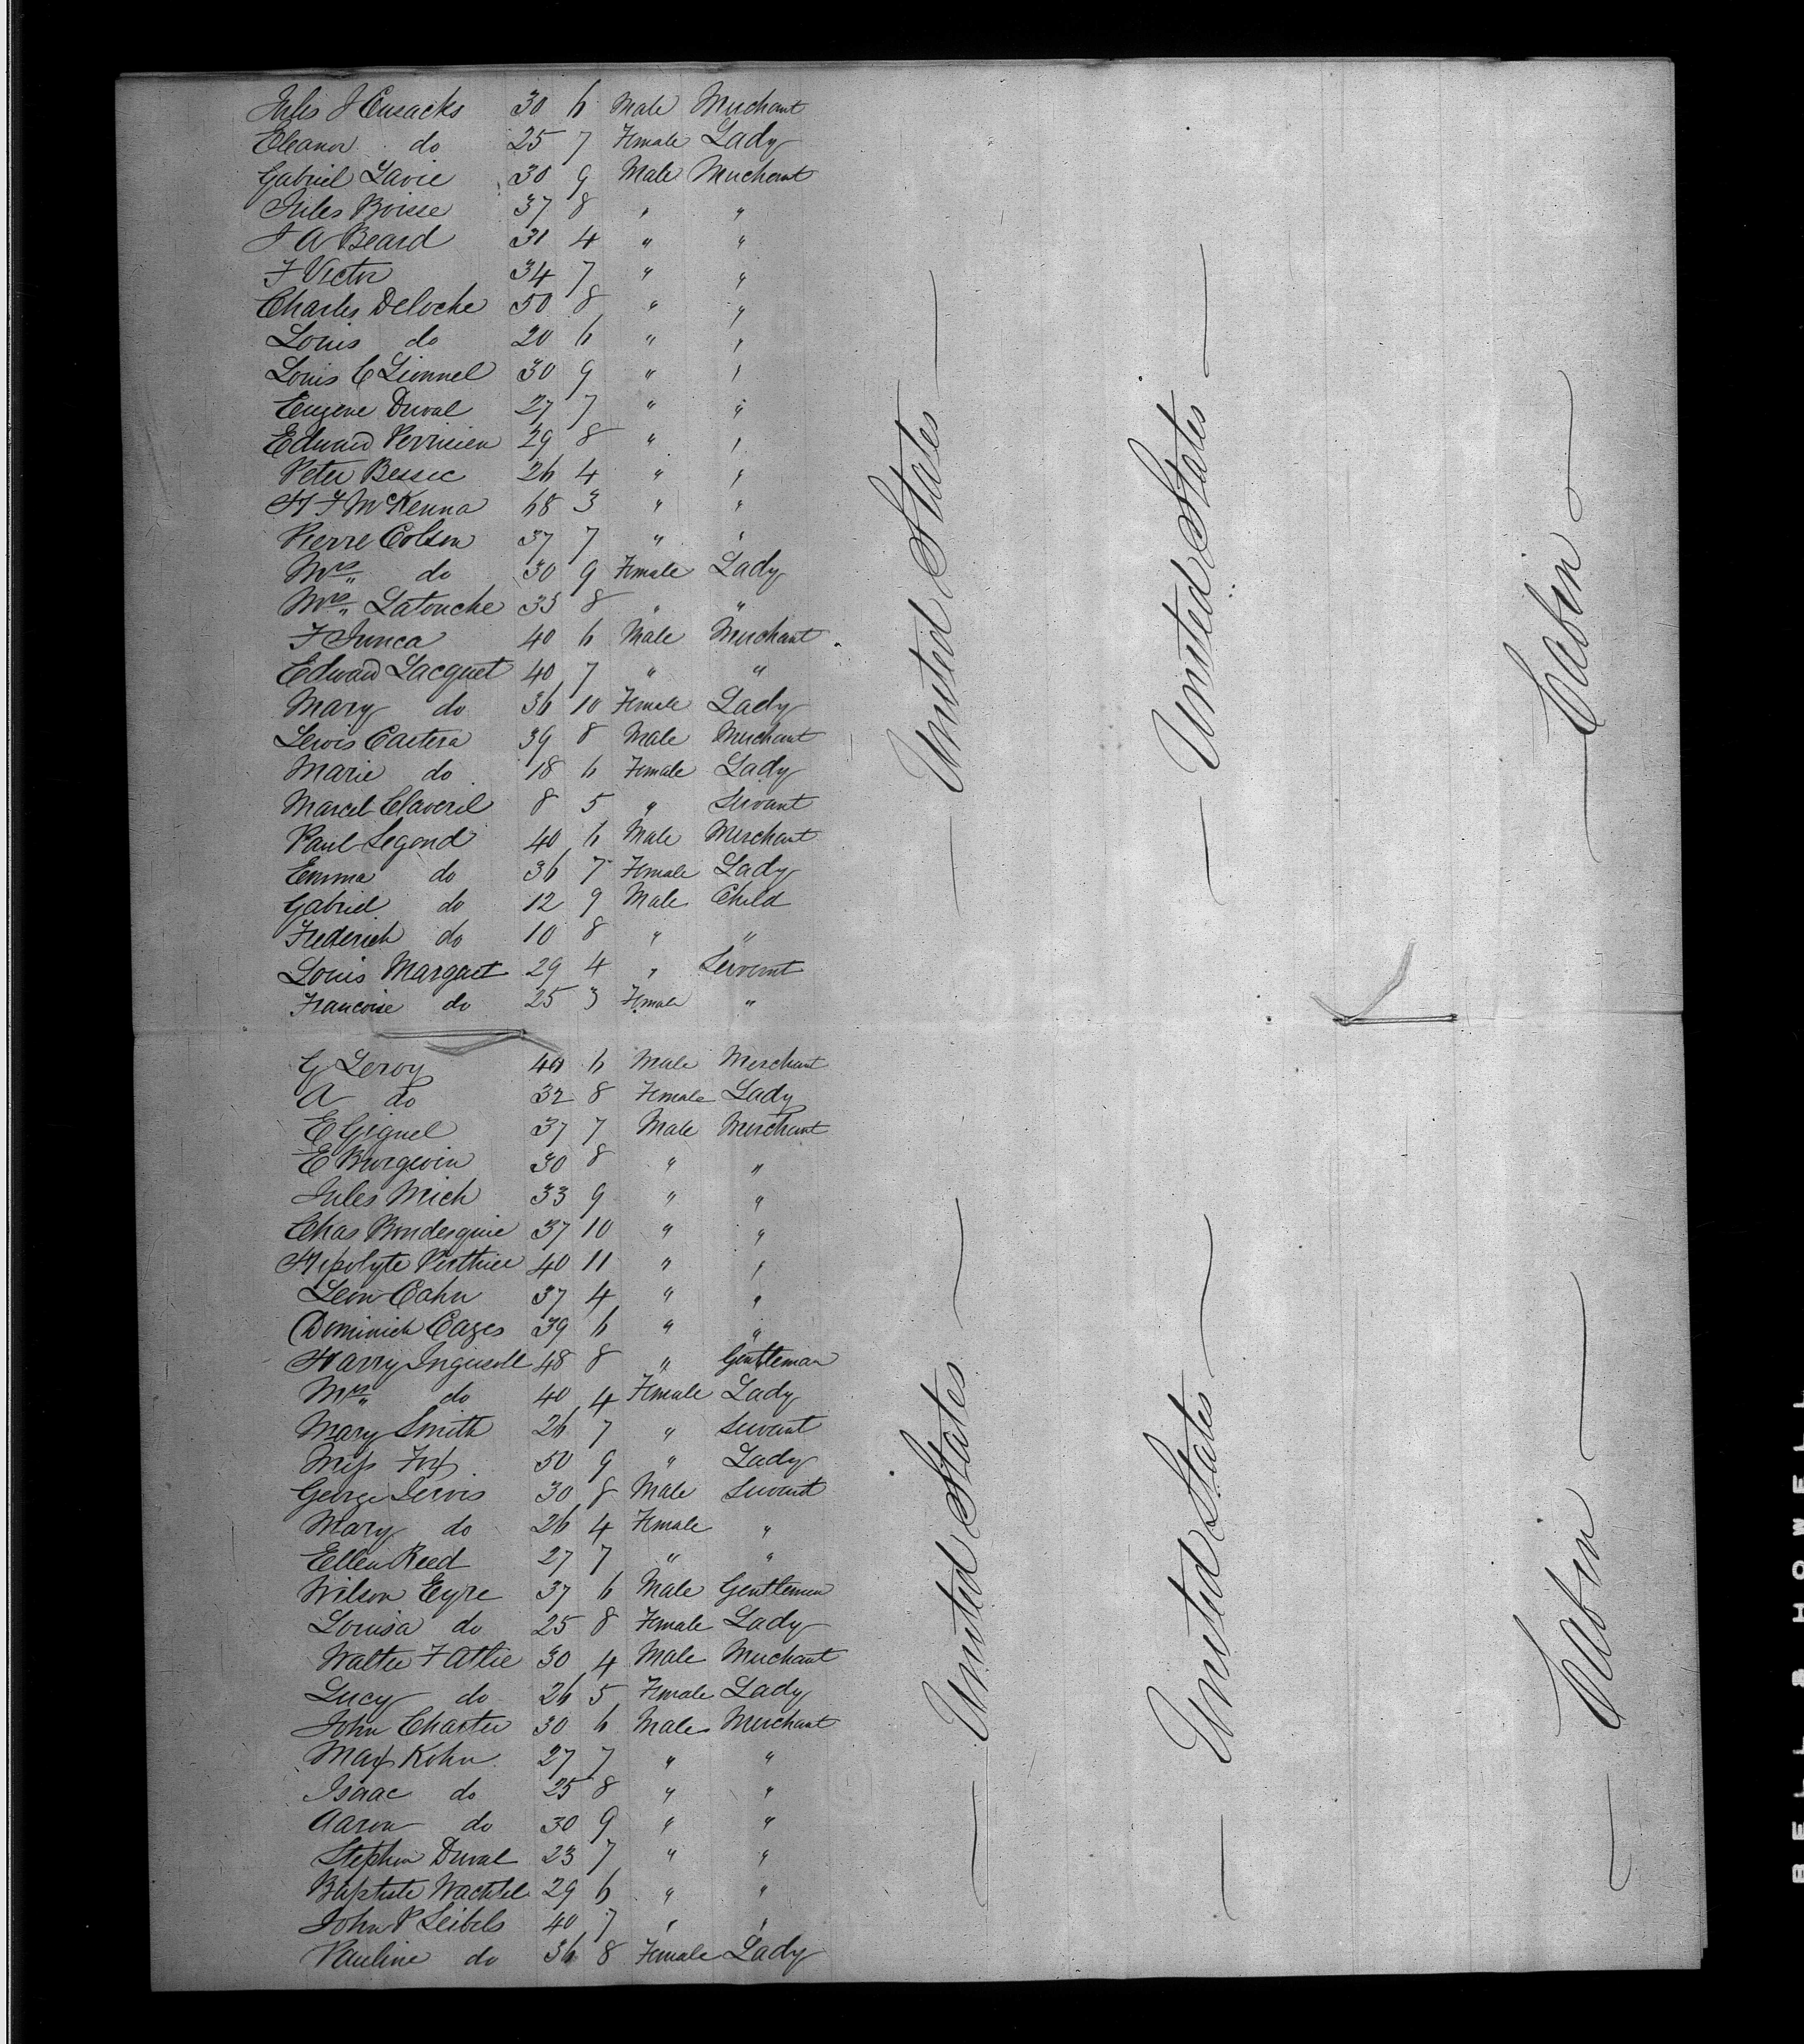 Jules J Cusacks 30 6 Male Merchant
Eleanor do 25 7 Female Lady
Gabriel Lavie 30 9 Male Merchant
Jules Boisse 37 8 " "
J A Beard 31 4 " "
F Victor 34 7 " "
Charles Deloche 50 8 " "
Louis do 20 6 " "
Louis C Lionnel 30 9 " "
Eugene Duval 27 7 " "
Edward 29 8 " "
Peter Bessec 26 4 " "
H F McKenna 68 3 " "
Pierre Colson 37 7 " "
Mrs do 30 9 Female Lady
Mrs Latouche 35 8 " "
F Junca 40 6 Male Merchant
Edward Lacquet 40 7 " "
Mary do 36 10 Female Lady
Lewis Cartera 39 8 Male Merchant
Marie do 18 6 Female Lady
Marcel Claveril 8 5 " Servant
Paul Legend 40 6 Male Merchant
Emma do 36 7 Female Lady
Gabriel do 12 9 Male Child
Frederick do 10 8 " "
Louis Margaet 29 4 " Servent
Francoise do 25 3 Female "
G Leroy 40 6 Male Merchant
A do 32 8 Female Lady
E Giguel 37 7 Male Merchant
E Burgevin 30 8 " "
Jules Mich 33 9 " "
Chas Bondesquie 37 10 " "
Hipolyte Perthier 40 11 " "
Leon Cahn 37 4 " "
Dominick Cazes 39 6 " "
Harry Ingersoll 48 8 " Gentleman
Mrs do 40 4 Female Lady
Mary Smith 26 7 " Servant
Miss Fox 50 9 " Lady
George Jervis 30 8 Male Servant
Mary do 26 4 Female "
Ellen Reed 27 7 " "
Wilson Eyre 37 6 Male Gentleman
Louisa do 25 8 Female Lady
Walter F Atlee 30 4 Male Merchant
Lucy do 26 5 Female Lady
John Charter 30 6 Male Merchant
Max Kohn 27 7 " "
Isaac do 25 8 " "
Aaron do 30 9 " "
Stephen Duval 23 7 " "
Baptiste Wachtel 29 6 " "
John P Leibels 40 7 " "
Pauline do 36 8 Female Lady
United States
United States
Cabin
United States
United States
Cabin
BELL & HOWELL